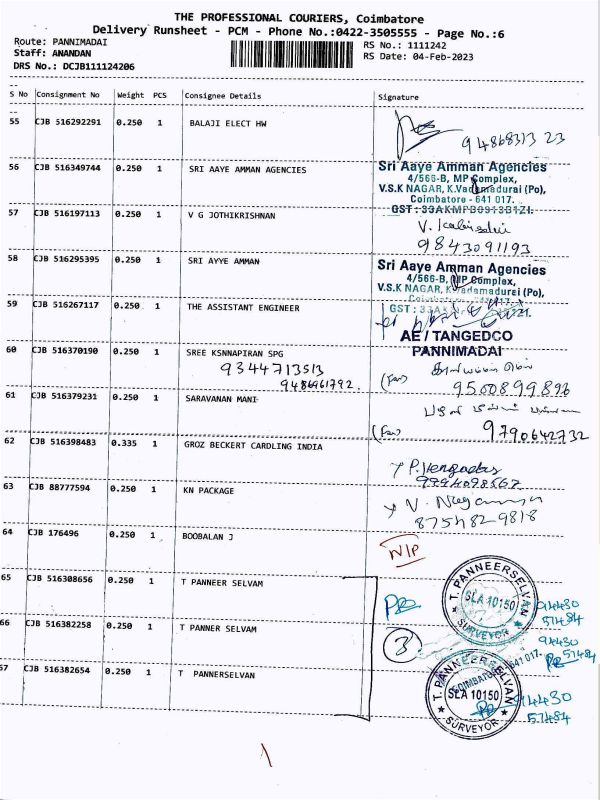 THE PROFESSIONAL COURIERS, Coimbatore
Delivery Runsheet - PCM - Phone No.:0422-3505555 - Page No.:6
Route: PANNIMADAI
Staff: ANANDAN
DRS No.: DCJB111124206
RS No.: 1111242
RS Date: 04-Feb-2023
S No Consignment No Weight PCS Consignee Details Signature
55 CJB 516292291 0.250 1 BALAJI ELECT HW
94868313 23
56 CJB 516349744 0.250 1 SRI AAYE AMMAN AGENCIES
Sri Aaye Amman Agencies
4/566-B, MP Complex,
V.S.K NAGAR, K.Vadamadurai (Po),
Coimbatore - 641 017.
GST : 33AKMPB0913B1ZI.
57 CJB 516197113 0.250 1 V G JOTHIKRISHNAN
9843091193
58 CJB 516295395 0.250 1 SRI AYYE AMMAN
Sri Aaye Amman Agencies
4/566-B, MP Complex,
V.S.K NAGAR, K.Vadamadurai (Po),
59 CJB 516267117 0.250 1 THE ASSISTANT ENGINEER
AE / TANGEDCO
PANNIMADAI
60 CJB 516370190 0.250 1 SREE KSNNAPIRAN SPG
9344713513
9486961792.
9500899896
61 CJB 516379231 0.250 1 SARAVANAN MANI
9790642732
62 CJB 516398483 0.335 1 GROZ BECKERT CARDLING INDIA
63 CJB 88777594 0.250 1 KN PACKAGE
875482 9818
64 CJB 176496 0.250 1 BOOBALAN J
N/P
65 CJB 516308656 0.250 1 T PANNEER SELVAM
T. PANNEERSELVAN
SLA 10150
SURVEYOR
94430
57484
66 CJB 516382258 0.250 1 T PANNER SELVAM
3
94430
57484
641 017.
67 CJB 516382654 0.250 1 T PANNERSELVAN
T. PANNEERSELVAN
COIMBATORE
SLA 10150
SURVEYOR
94430
57484